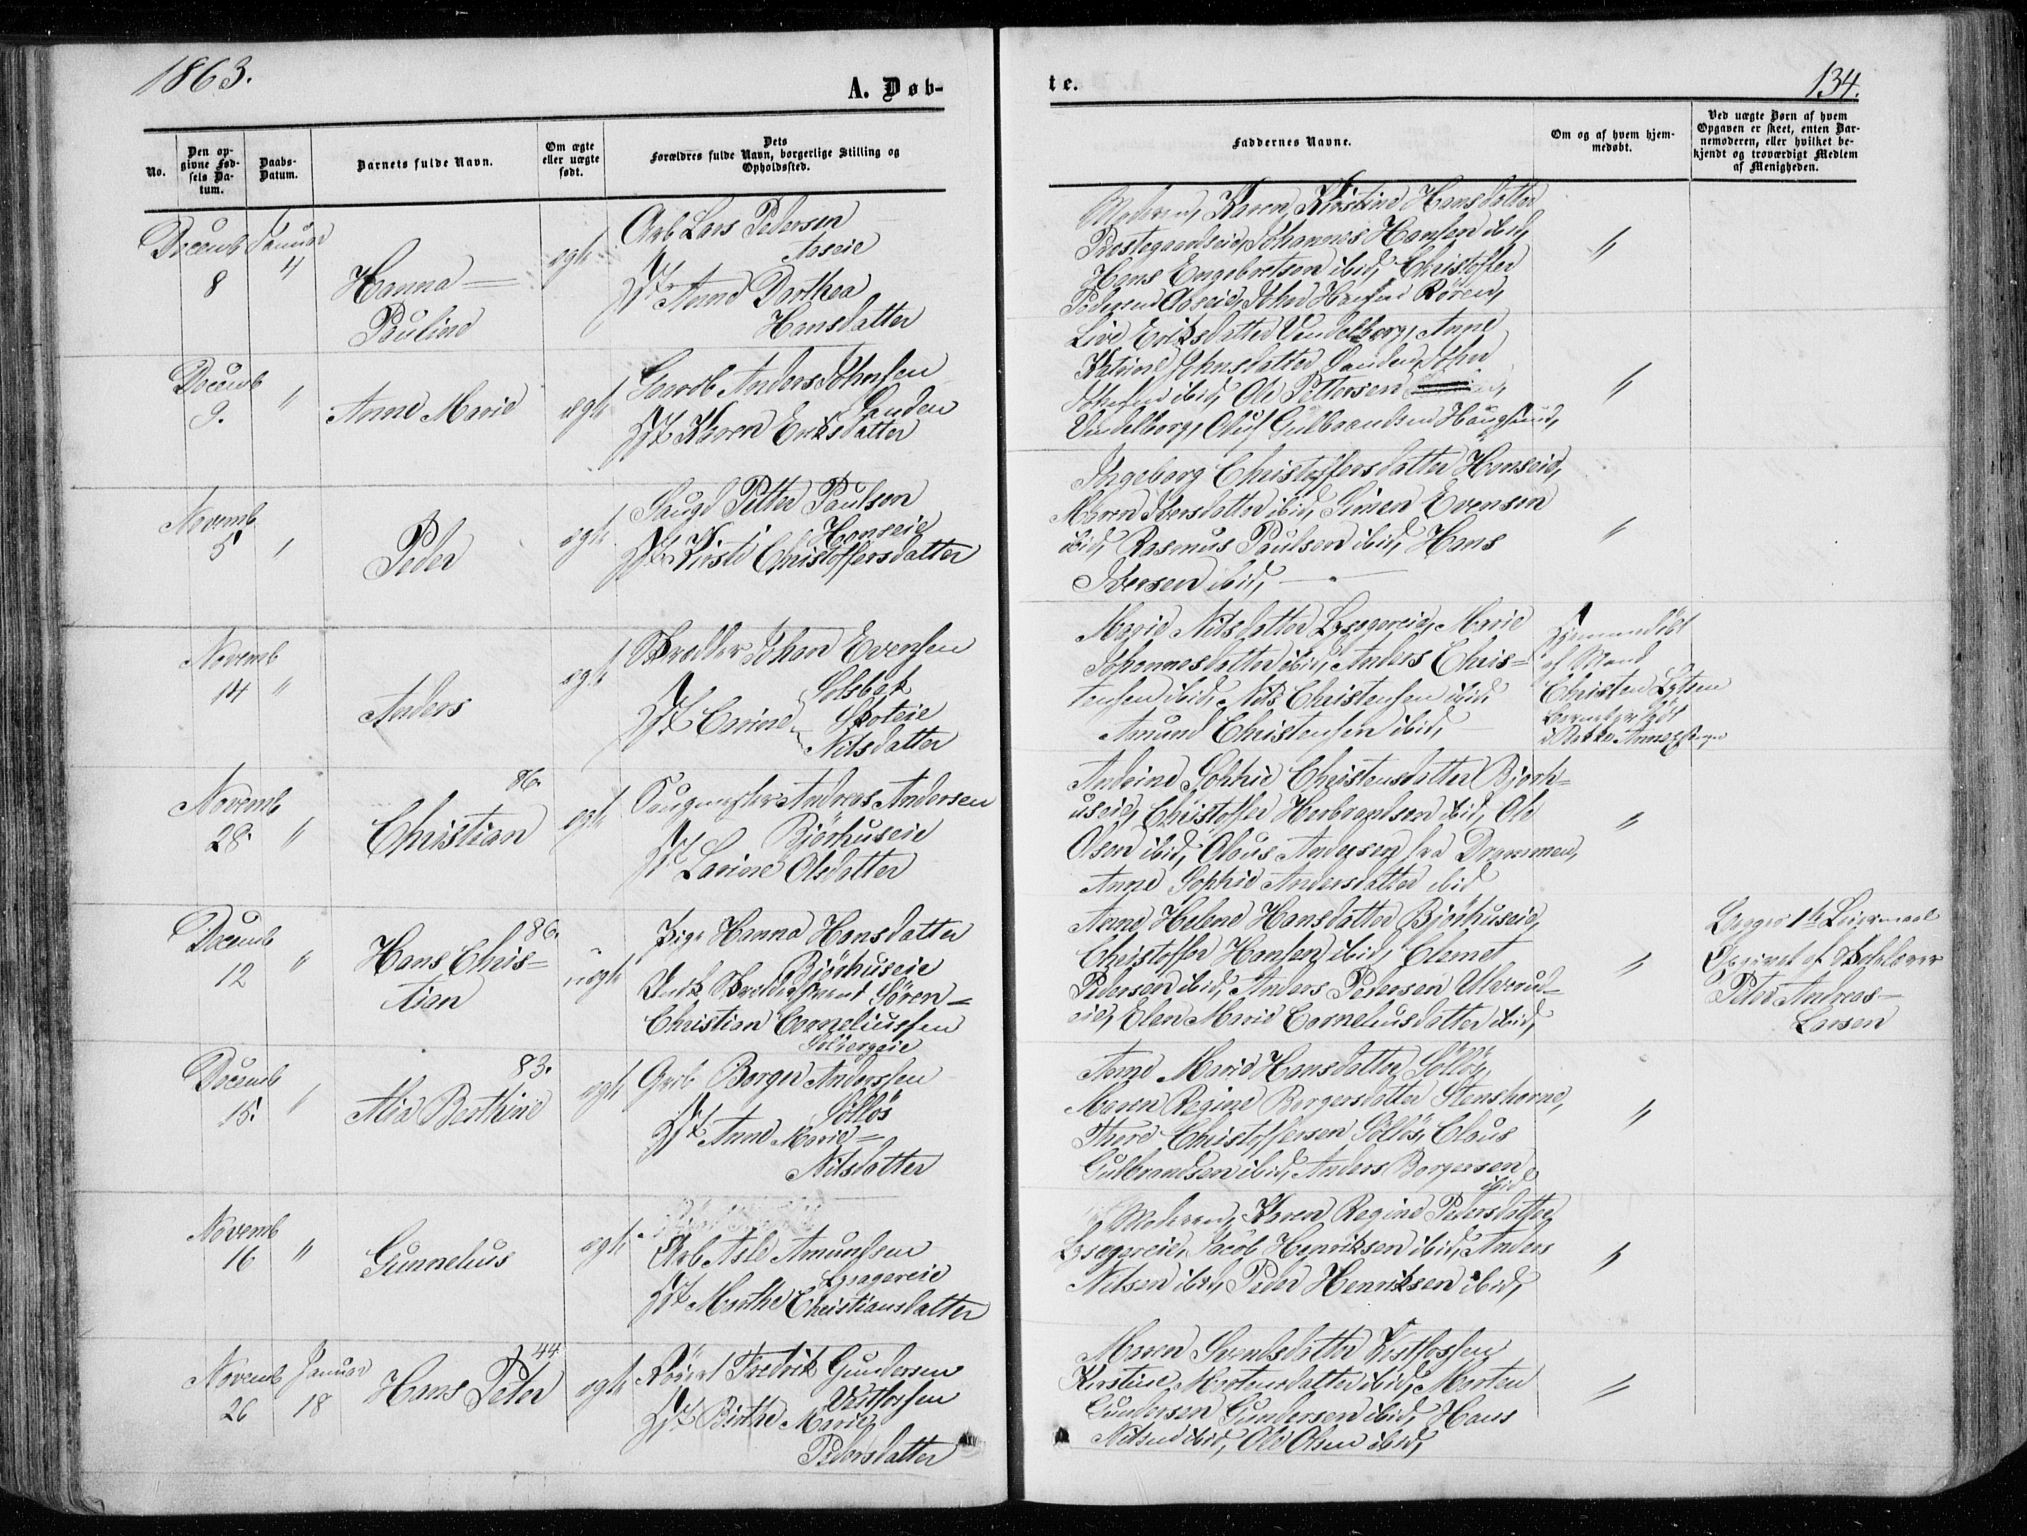 1863.
A. Døb-
No.
Den op-
givne Fød-
sels Da-
tum.
Daabs-
Datum.
Barnets fulde Navn.
Om ægte
eller uægte
født.
Dets
Forældres fulde Navn, borgerlige Stilling og
Opholdssted.
Decemb
8
Januar
4
Hanna
Pauline
ægte
Arb Lars Pedersen
Aaseie
Anne Dorthea
Hansdatter
Decemb
9.
"
Anne Marie
ægte
Anders Johnsen
Sanden
Karen Eriksdatter
Novemb
5
"
Peder
ægte
Petter Paulsen
Honseie
Kirsti Christoffersdatter
Novemb
14
"
Anders
ægte
Johan Evensen
Solsbak
Carine
Nilsdatter
Novemb
28.
"
86.
Christian
ægte
Saugmester Andreas Andersen
Bjørhuseie
Lavine Olsdatter
Decemb
12
"
86.
Hans Chris-
tian
uægte
Pige Hanna Hansdatter
Bjørhuseie
Søren
Christian Corneliussen
Solbergeie
Decemb
15.
"
83.
Alia Berthine
ægte
Borger Anderssen
Solløs
Anne Marie
Nilsdatter
Novemb
16
"
Gunnelius
ægte
Arb Asle Amundsen
Lysagereie
Marthe Christiansdatter
Novemb
26
Januar
18
44
Hans Peter
ægte
Fredrik Gundersen
Vestfossen
Birthe Marie
Pedersdatter
te.
134.
Faddernes Navne.
Om og af hvem hjem-
medøbt.
Ved uægte Børn af hvem
Opgaven er skeet, enten Bar-
nemoderen, eller hvilket be-
kjendt og troværdigt Medlem
af Menigheden.
Moderen, Karen Kirstine Hansdatter
Prestegaardseie, Johannes Hansen ibid,
Hans Engebretsen ibid, Christoffer
Pedersen Aaseie, Hansen Røren,
"
Live Eriksdatter Vendelborg, Anne
Katrine Johnsdatter Sanden, John
Johnsen ibid, Ole Pettersen
Vendelborg, Oluf Gulbrandsen Haugsund,
"
Ingeborg Christoffersdatter Honseie,
Maren Iversdatter ibid, Simen Evensen
ibid, Rasmus Paulsen ibid, Hans
Iversen ibid,
"
Marie Nilsdatter Lysagereie, Marie
Johannesdatter ibid, Anders Chris-
tensen ibid, Nils Christensen ibid,
Amund Christensen ibid,
Hjemmedøbt
af Mand
Christen
Andrine Sophie Christensdatter Bjørh-
useie, Christoffer Herbrandsen ibid, Ole
Olsen ibid, Olaus Andersen fra Drammen,
Anne Sophie Andersdatter ibid
"
Anne Helene Hansdatter Bjørhuseie,
Christoffer Hansen ibid, Clemet
Pedersen ibid, Anders Pedersen Ullerud-
eie, Elen Marie Corneliusdatter ibid,
"
Begges 1te Leiermaal
Opgivet af Skolelærer
Peter Andreas
Larsen
Anne Marie Hansdatter Solløs,
Maren Regine Borgersdatter Stenshorne,
Thure Christoffersen Solløs, Claus
Gulbrandsen ibid, Anders Borgersen
ibid
"
Moderen, Karen Regine Pedersdatter
Lysagereie, Jacob Henriksen ibid, Anders
Nilsen ibid, Peder Henriksen ibid,
"
Maren Svendsdatter Vestfossen
Kirstine Mortensdatter ibid, Morten
Gundersen Gundersen ibid, Hans
Nilsen ibid, Ole Olsen ibid,
"